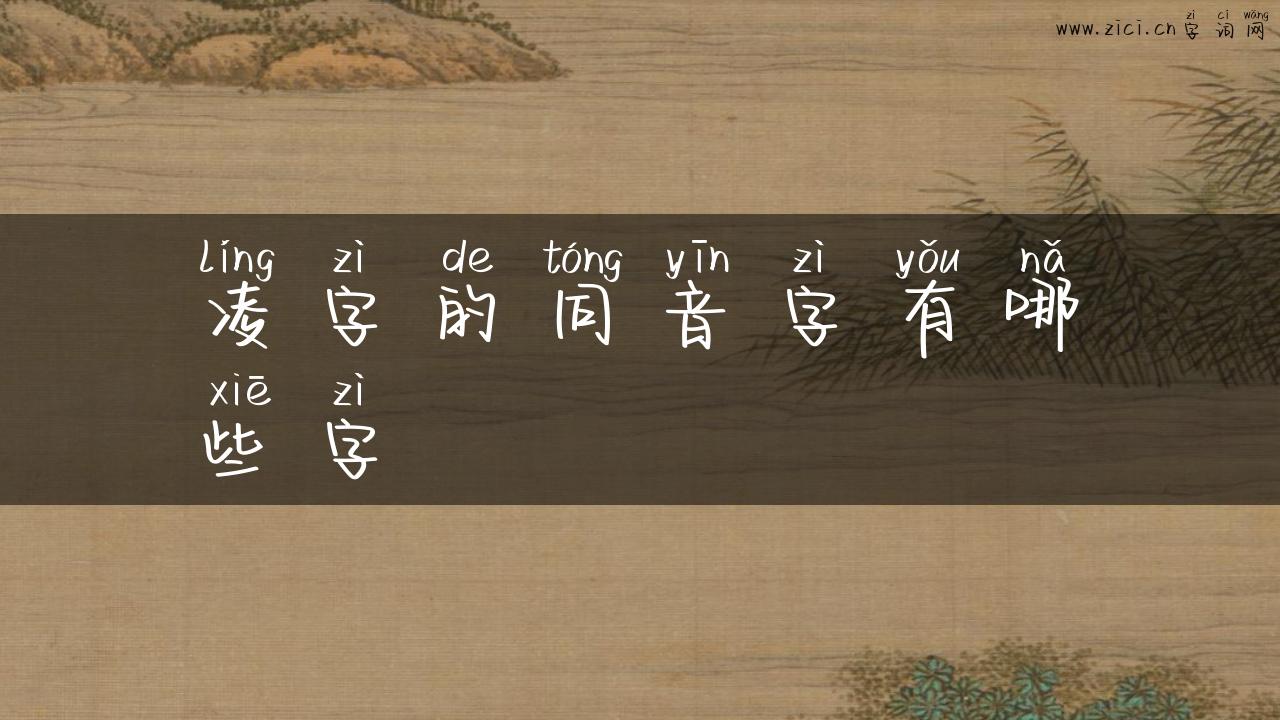 zì cí wǎng
www.zici.cn 字 词 网
líng zì de tóng yīn zì yǒu nǎ
凌 字 的 同 音 字 有 哪
xiē zì
些 字